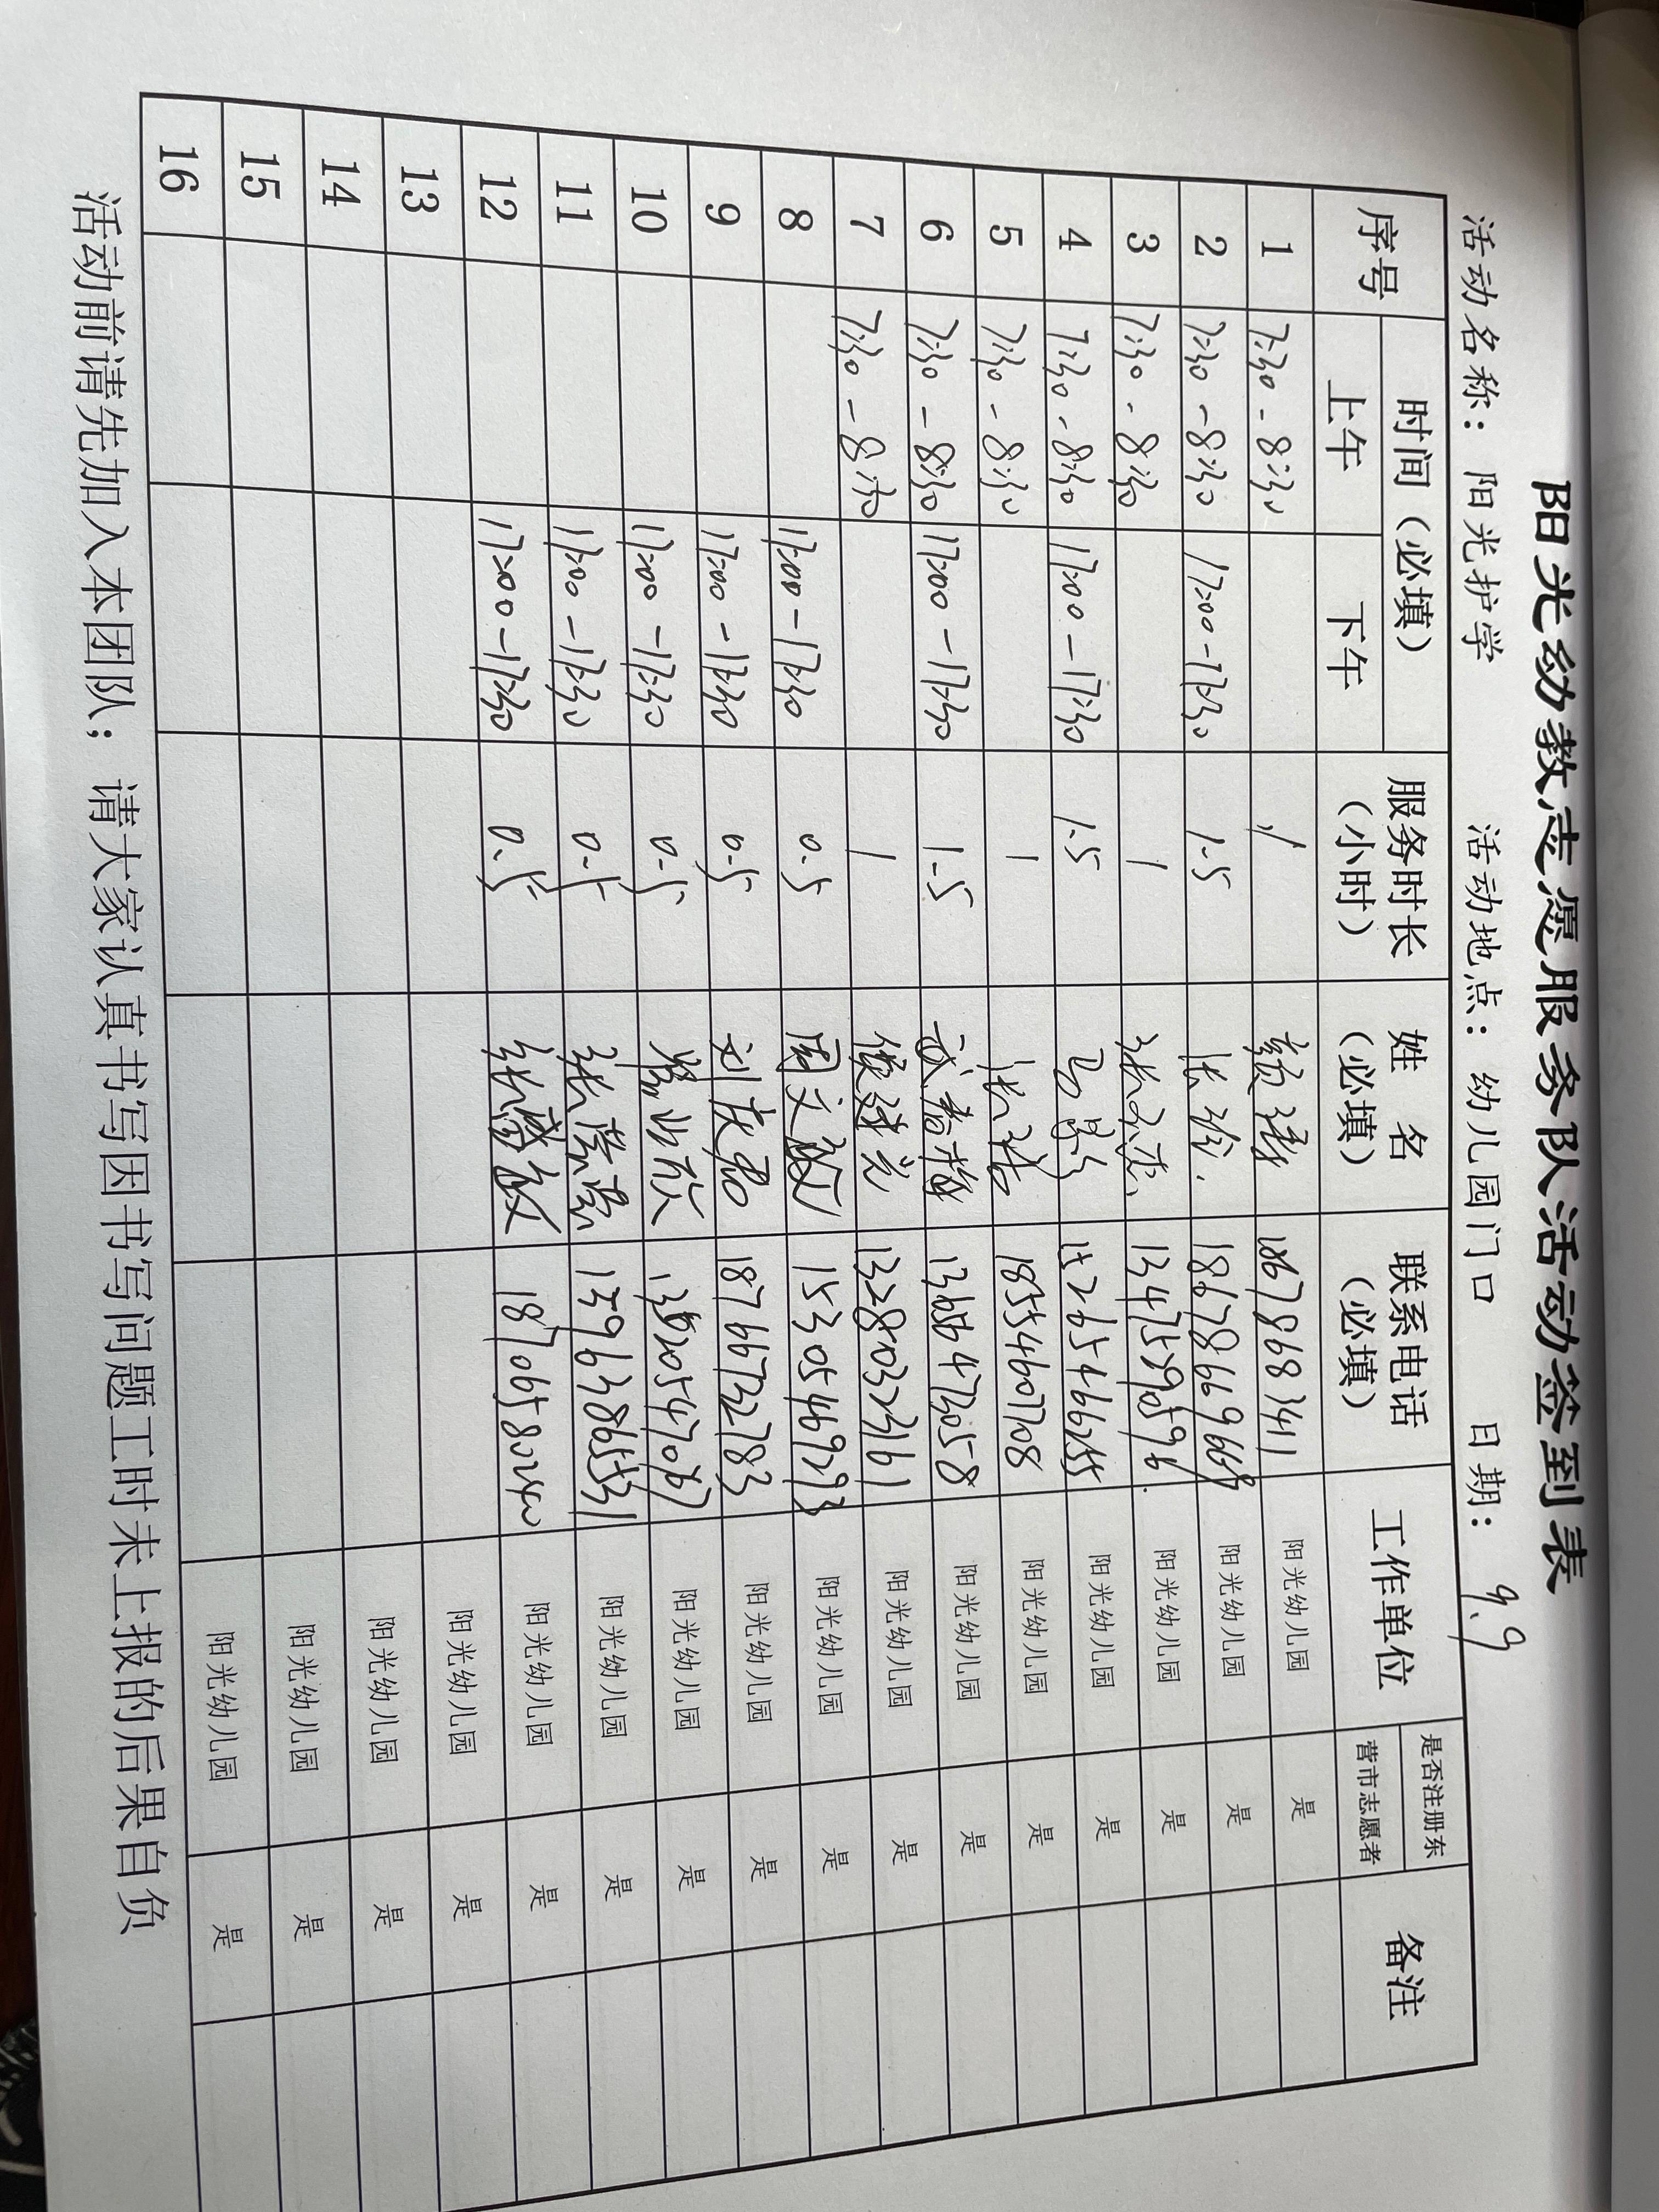 阳光幼教志愿服务队活动签到表
活动名称：阳光护学 活动地点：幼儿园门口 日期：9.9
序号 时间（必填） 服务时长（小时） 姓名（必填） 联系电话（必填） 工作单位 是否注册东营市志愿者 备注
上午 下午
1 7:30-8:30 1 18678683411 阳光幼儿园 是
2 7:30-8:30 17:00-17:30 1.5 张玲 阳光幼儿园 是
3 7:30-8:30 1 13475390596 阳光幼儿园 是
4 7:30-8:30 17:00-17:30 1.5 马景 15265466255 阳光幼儿园 是
5 7:30-8:30 1 张洁 18554607708 阳光幼儿园 是
6 7:30-8:30 17:00-17:30 1.5 武春梅 阳光幼儿园 是
7 7:30-8:30 1 13280323161 阳光幼儿园 是
8 17:00-17:30 0.5 周文敏 15305469293 阳光幼儿园 是
9 17:00-17:30 0.5 刘庆霞 18766732783 阳光幼儿园 是
10 17:00-17:30 0.5 阳光幼儿园 是
11 17:00-17:30 0.5 张蒙蒙 阳光幼儿园 是
12 17:00-17:30 0.5 张盛敏 阳光幼儿园 是
13 阳光幼儿园 是
14 阳光幼儿园 是
15 阳光幼儿园 是
16 阳光幼儿园 是
活动前请先加入本团队；请大家认真书写因书写问题工时未上报的后果自负